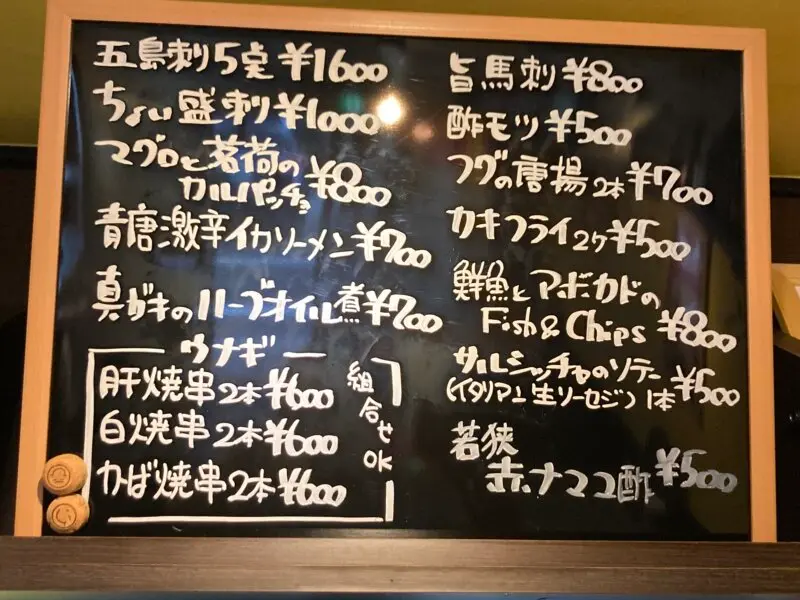 五島刺り5点 ¥1600
ちょい盛刺 ¥1000
マグロと茗荷の
カルパッチョ ¥800
青唐激辛イカソーメン ¥700
真ガキのハーブオイル煮 ¥700
ウナギ
肝焼串2本 ¥600
白焼串2本 ¥600
かば焼串2本 ¥600
組合せOK
旨馬刺 ¥800
酢モツ ¥500
フグの唐揚2本 ¥700
カキフライ2ケ ¥500
鮮魚とアボカドの
Fish & Chips ¥800
サルシッチャのソテー
(イタリアン生ソーセジ) 1本 ¥500
若狭
赤ナマコ酢 ¥500